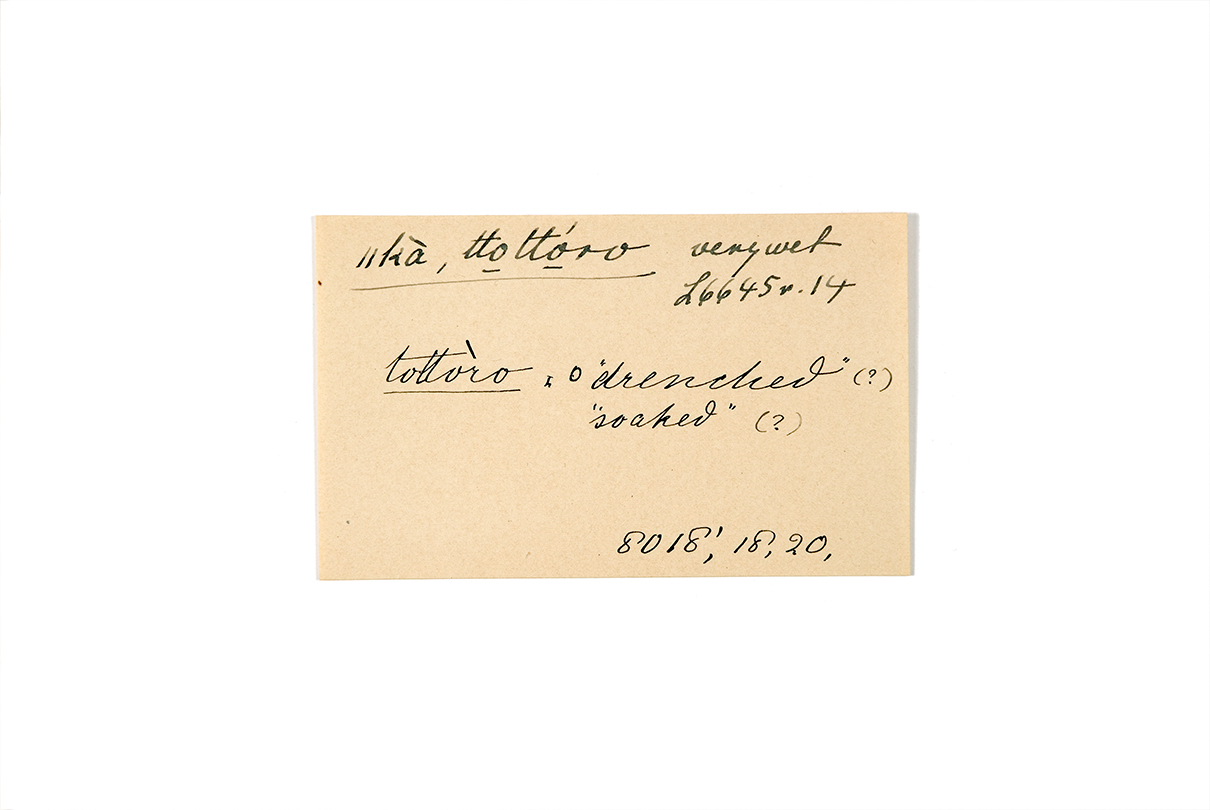 ǁkà, tto̱ttó̱ro very wet
L6645v.14
tottòro, o "drenched" (?)
"soaked" (?)
8018', 18, 20,